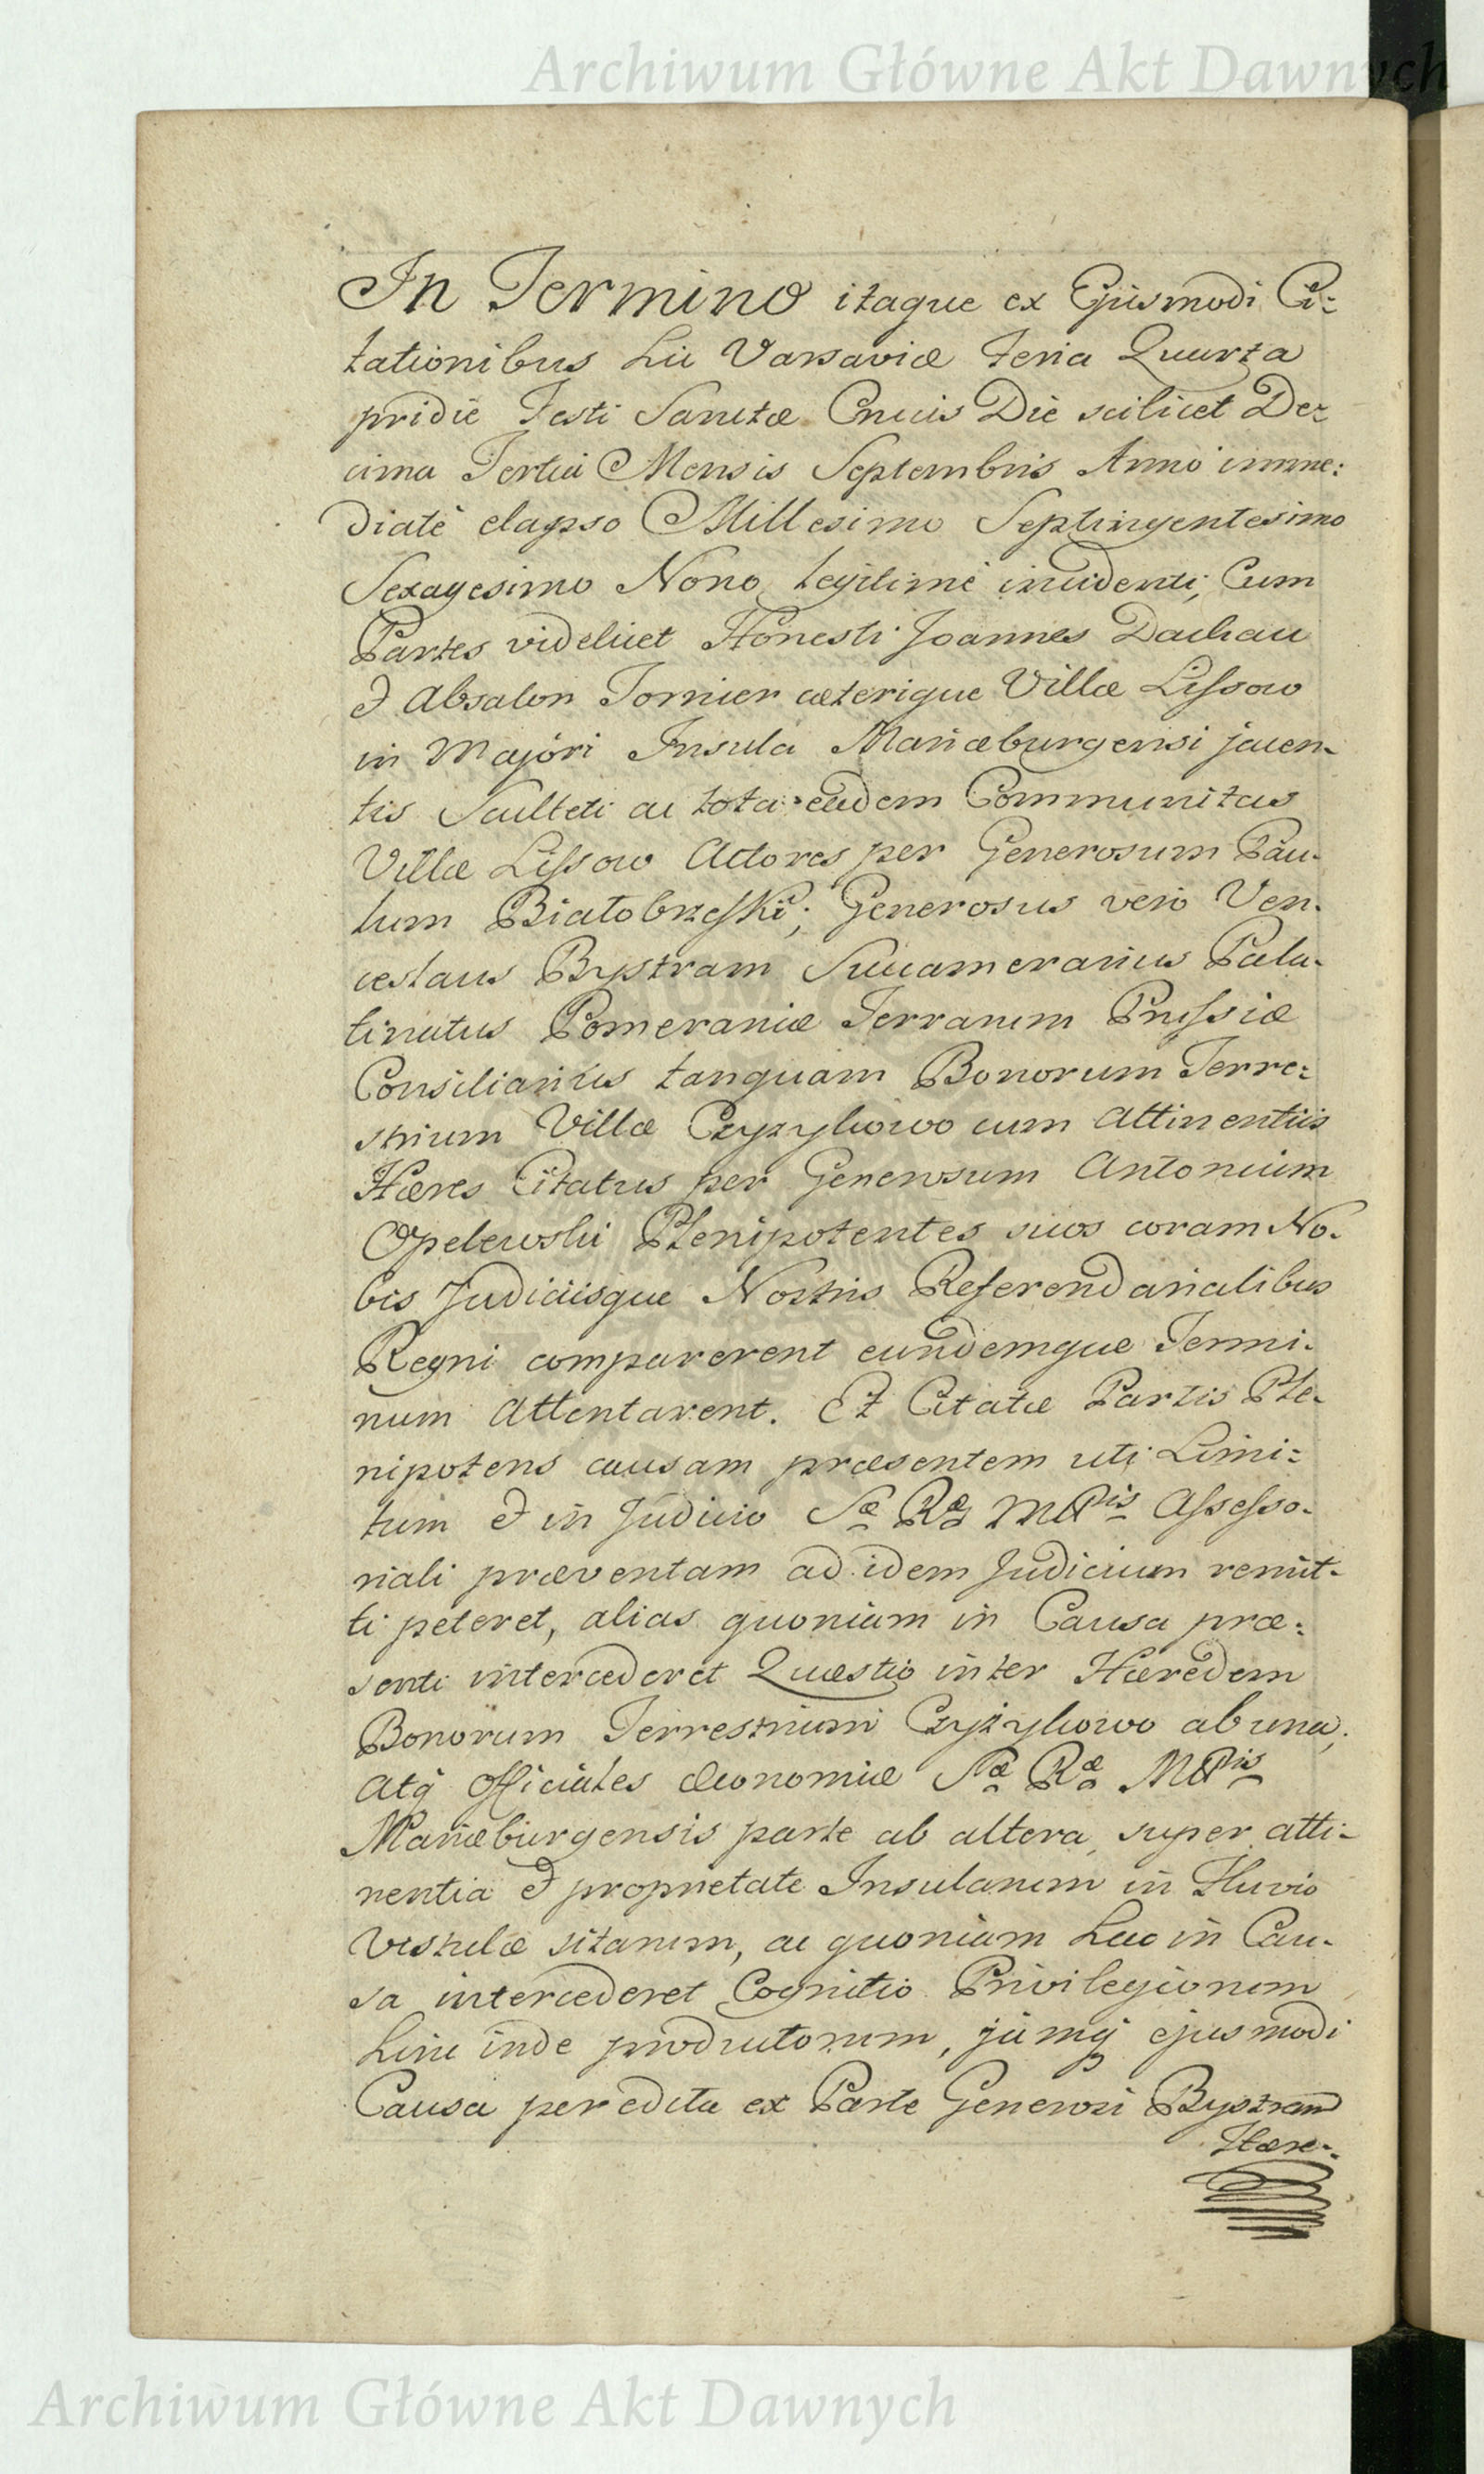 Archiwum Główne Akt Dawnych
In Termino itaque ex Ejusmodi Ci:
tationibus hic Varsaviæ Feria Quarta
pridie Festi Sanctæ Crucis Die scilicet De:
cima Tertia Mensis Septembris Anno imme:
diatè elapso Millesimo Septingentesimo
Sexagesimo Nono legitimè incidenti, Cum
Partes videlicet Honesti Joannes Dachau
& Absalon Tornier cæterique Villæ Lissow
in Majori Insula Mariæburgensi jacen-
tis Sculteti ac tota eadem Communitas
Villæ Lissow Actores per Generosum Pau-
lum Białobrzeski; Generosus verò Ven-
ceslaus Bystram Succamerarius Pala-
tinatus Pomeraniæ Terrarum Prussiæ
Consiliarius tanquam Bonorum Terre:
strium Villæ Czyżykowo cum Attinentiis
Hæres Citatus per Generosum Antonium
Opelewski Plenipotentes suos coram No-
bis Judiciisque Nostris Referendarialibus
Regni comparerent eundemque Termi-
num Attentarent. Et Citatæ Partis Ple-
nipotens causam præsentem uti Limi:
tum & in Judicio Sæ Ræ Mttis Assesso-
riali præventam ad idem Judicium remit-
ti peteret, alias quoniam in Causa præ:
senti intercederet Quæstio inter Hæredem
Bonorum Terrestrium Czyżykowo ab una,
atq Officiales Œconomiæ Sæ Ræ Mttis
Mariæburgensis parte ab altera, super atti-
nentia & proprietate Insularum in Fluvio
Vistulæ sitarum, ac quoniam hac in Cau-
sa intercederet Cognitio Privilegiorum
hinc inde productorum, jamq ejusmodi
Causa per edita ex Parte Generosi Bystram
Hære-
Archiwum Główne Akt Dawnych